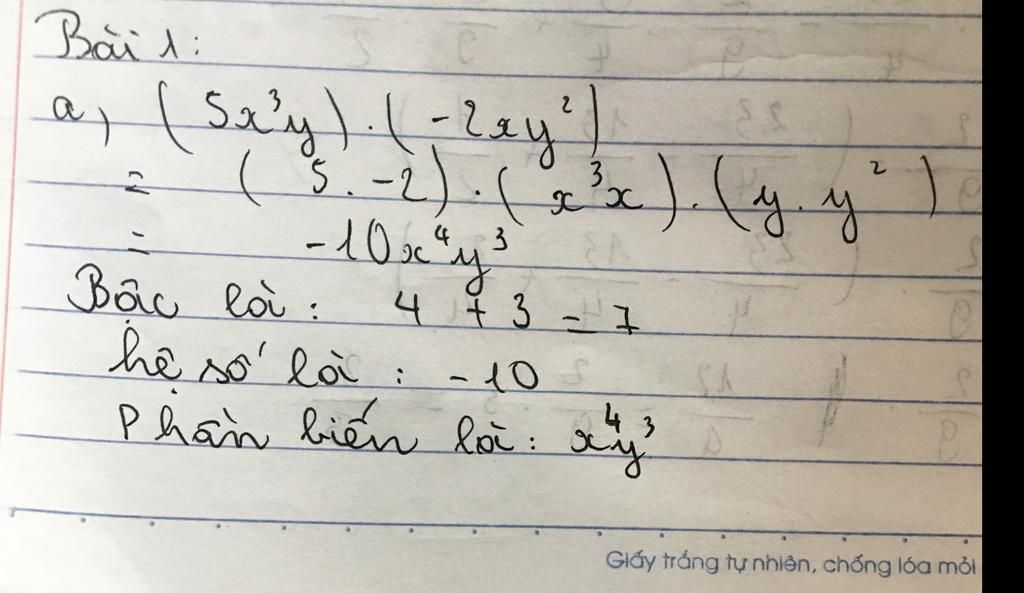 Bài 1:
a, (5x³y).(-2xy²)
= (5.-2).(x³x).(y.y²)
= -10x⁴y³
Bậc lò: 4 + 3 = 7
hệ số lò: -10
Phần biến lò: x⁴y³
Giấy trắng tự nhiên, chống lóa mỏi